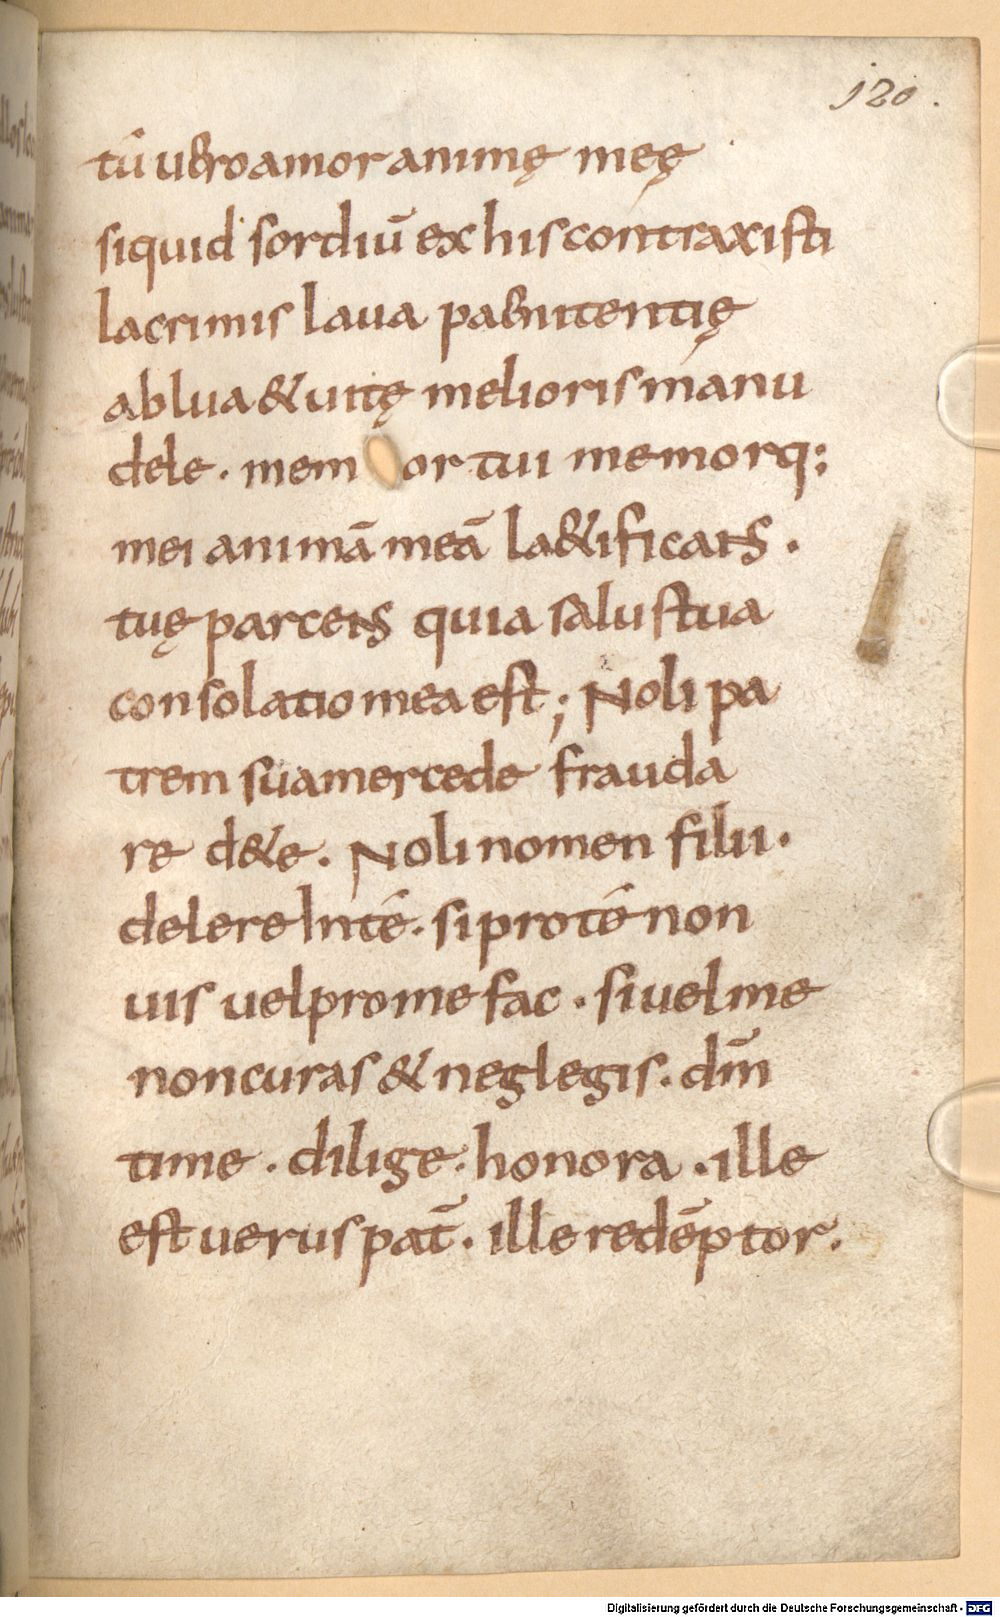 120.
tú uero amor animę meę
siquid sordiū ex his contraxisti
lacrimis laua paenitentię
ablua & uitę melioris manu
dele. mem or tui memorq;
mei animā meā la&ificans.
tuę parcens quia salus tua
consolatio mea est; Noli pa
trem sua mercede frauda
re d&e. Noli nomen filii.
delere In té. si pro té non
uis uel pro me fac. si uel me
non curas & neglegis. dm̄
time. dilige. honora. ille
est uerus pat̄. ille redēptor.
Digitalisierung gefördert durch die Deutsche Forschungsgemeinschaft - DFG